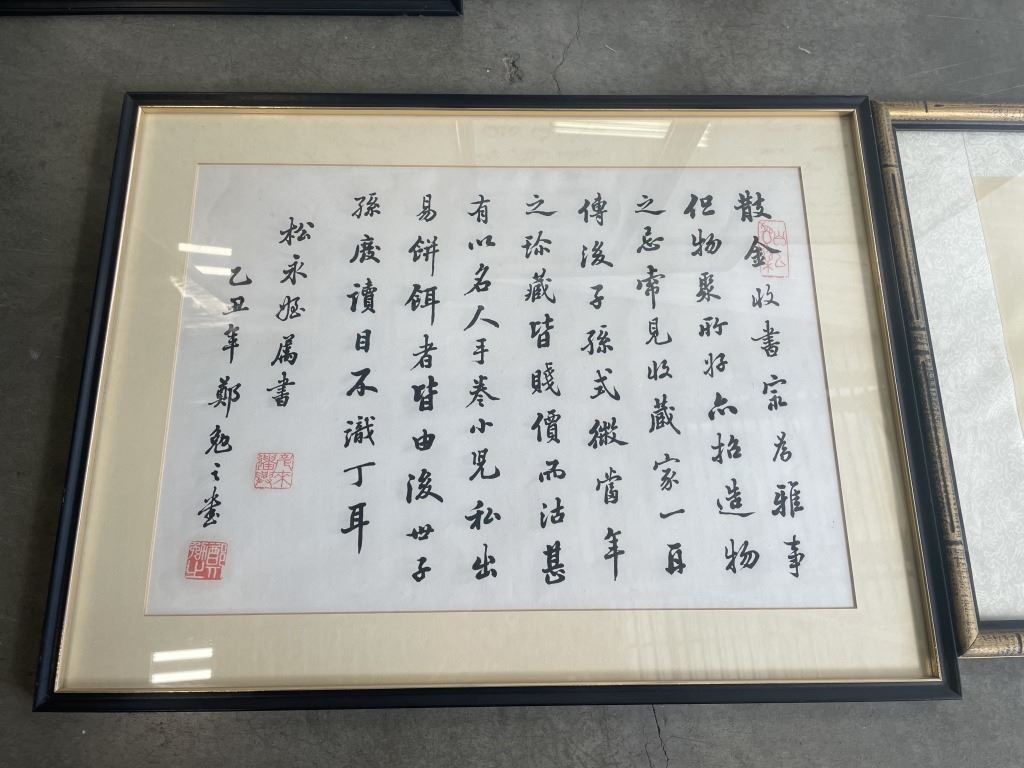 散金收書宗為雅事
但物聚所好亦招造物
之忌常見收藏家一再
傳後子孫式微當年
之珍藏皆賤價而沽甚
有以名人手卷小兒私出
易餅餌者皆由後世子
孫廢讀目不識丁耳
松永姪屬書
乙丑年鄭勉之書